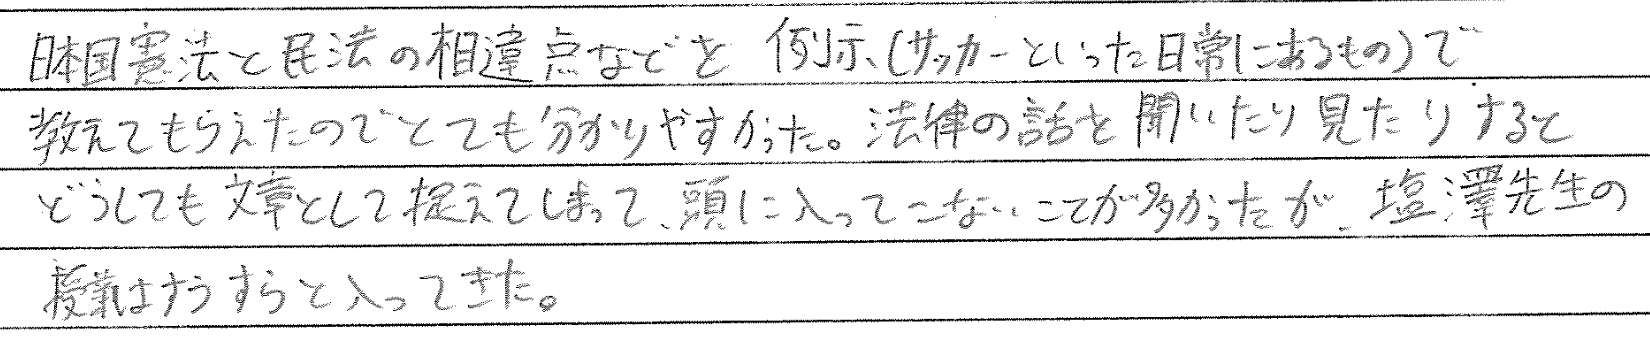 日本国憲法と民法の相違点などを 例示、(サッカーといった日常にあるもの)で
教えてもらえたのでとても分かりやすかった。法律の話を聞いたり見たりすると
どうしても文章として捉えてしまって、頭に入ってこないことが多かったが、塩澤先生の
授業はすうすらと入ってきた。